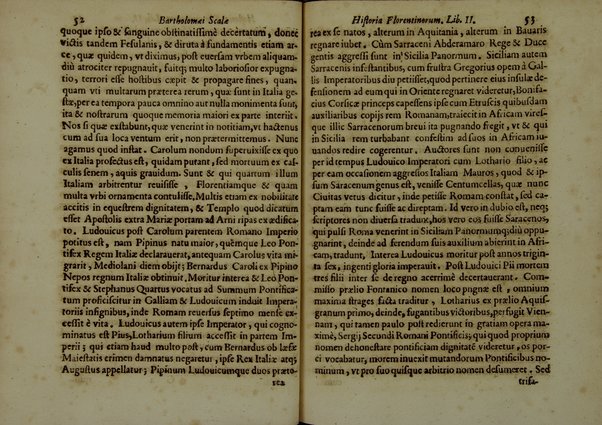 52 Bartholomei Scale
quoque ipso & sanguine obstinatissimè decertatum, donec
victis tandem Fesulanis, & diruta à fundamentis etiam ar-
ce, quæ quidem, vt diximus, post euersam vrbem aliquan-
diù atrociter repugnauit, fuitq; multo laboriosior expugna-
tio, terrori esse hostibus cœpit & propagare fines, quan-
quam vti multarum præterea rerum, quæ sunt in Italia ge-
stæ, per ea tempora pauca omnino aut nulla monimenta sunt,
ita & nostrarum quoque memoria maiori ex parte interiit.
Nos si quæ exstabunt, quæ venerint in notitiam, vt hactenus
cum ad sua loca ventum erit, non prætermittemus. Nunc
agamus quod instat. Carolum nondum superuixisse ex quo
ex Italia profectus est, quidam putant, sed mortuum ex cal-
culis senem, aquis grauidum. Sunt & qui quartum illum
Italiam arbitrentur reuisisse, Florentiamque & quam
multa vrbi ornamenta contulisse. Multis etiam ex nobilitate
accitis in equestrem dignitatem, & Templo quod dicatum
esset Apostolis extra Mariæ portam ad Arni ripas exædifica-
to. Ludouicus post Carolum parentem Romano Imperio
potitus est, nam Pipinus natu maior, quêmque Leo Pon-
tifex Regem Italiæ declarauerat, antequam Carolus vita mi-
garet, Mediolani diem obijt; Bernardus Caroli ex Pipino
Nepos regnum Italiæ obtimuit. Moritur interea & Leo Pon-
tifex & Stephanus Quartus vocatus ad Summum Pontifica-
tum proficiscitur in Galliam & Ludouicum induit Impera-
toriis insignibus, inde Romam reuersus septimo mense ex-
cessit è vita, Ludouicus autem ipse Imperator, qui cogno-
minatus est Pius, Lotharium filium accessit in partem Im-
perij; qui etiam haud multo post, cum Bernardus ob læsæ
Maiestatis crimen damnatus negaretur, ipse Rex Italiæ atq;
Augustus appellatur; Pipinum Ludouicus duos præto-
rea
Historia Florentinorum. Lib. II. 53
rea ex se natos, alterum in Aquitania, alterum in Bauaris
regnare iubet. Cùm Sarraceni Abderamaro Rege & Duce
gentis aggressi sunt in Sicilia Panormum. Siciliam autem
Sarracenis infestantibus, cum frustra Gregorius opem à Gal-
lis Imperatoribus diu petiisset, quod pertinere eius insulæ de-
fensionem ad eum qui in Oriente regnaret videretur, Bonifa-
cius Corsicæ princeps capessens ipse cum Etruscis quibusdam
auxiliaribus copijs rem Romanam, traiecit in Africam vires-
que illic Sarracenorum breui ita pugnando fregit, vt & qui
in Sicilia rem turbabant confestim ad suos in Africam iu-
uandos redire cogerentur. Auctores sunt non conuenisse
per id tempus Ludouico Imperatori cum Lothario filio, ac
per eam occasionem aggressos Italiam Mauros, quod & ip-
sum Saracenum genus est, venisse Centumcellas, quæ nunc
Ciuitas vetus dicitur, inde petiisse Romam constat, sed ca-
ptam eam tunc fuisse ac direptam. Id vero in dubio est, neq;
scriptores non diuersa tradunt, hos vero eos fuisse Saracenos,
qui pulsi Roma venerint in Siciliam Panormumq; diù oppu-
gnarint, deinde ad ferendum suis auxilium abierint in Afri-
cam, tradunt, Interea Ludouicus moritur post annos trigin-
ta sex, ingenti gloria imperauit. Post Ludouici Pii mortem
tres filii inter se de regno acerrimè decertauerant. Com-
misso prælio Fontanico nomen loco pugnæ est, omnium
maxima strages facta traditur, Lotharius ex prælio Aquis-
granum primo, deinde, fugantibus victoribus, perfugit Vien-
nam, qui tamen paulo post redierunt in gratiam opera ma-
ximè, Sergij Secundi Romani Pontificis; qui quod proprium
nomen dehonestare pontificiam dignitatē videretur, os por-
ci vocabatur, morem inuexit mutandorum Pontificibus no-
minum, vt pro suo quisque arbitrio nomen desumeret. Sed
trisa-